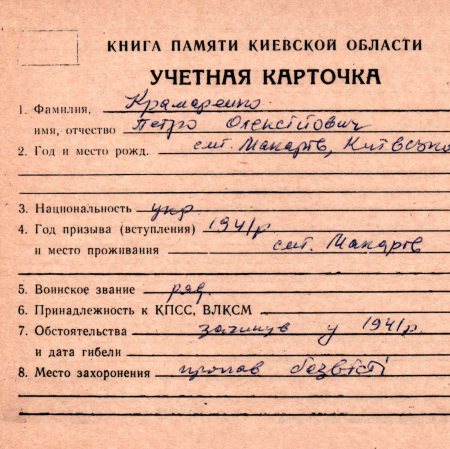 КНИГА ПАМЯТИ КИЕВСКОЙ ОБЛАСТИ
УЧЕТНАЯ КАРТОЧКА
1. Фамилия, Крамаренко
имя, отчество Петро Олексійович
2. Год и место рожд. смт. Макарів, Київської
3. Национальность укр
4. Год призыва (вступления) 1941р
и место проживания смт. Макарів
5. Воинское звание ряд.
6. Принадлежность к КПСС, ВЛКСМ
7. Обстоятельства загинув у 1941р.
и дата гибели
8. Место захоронения пропав безвісті